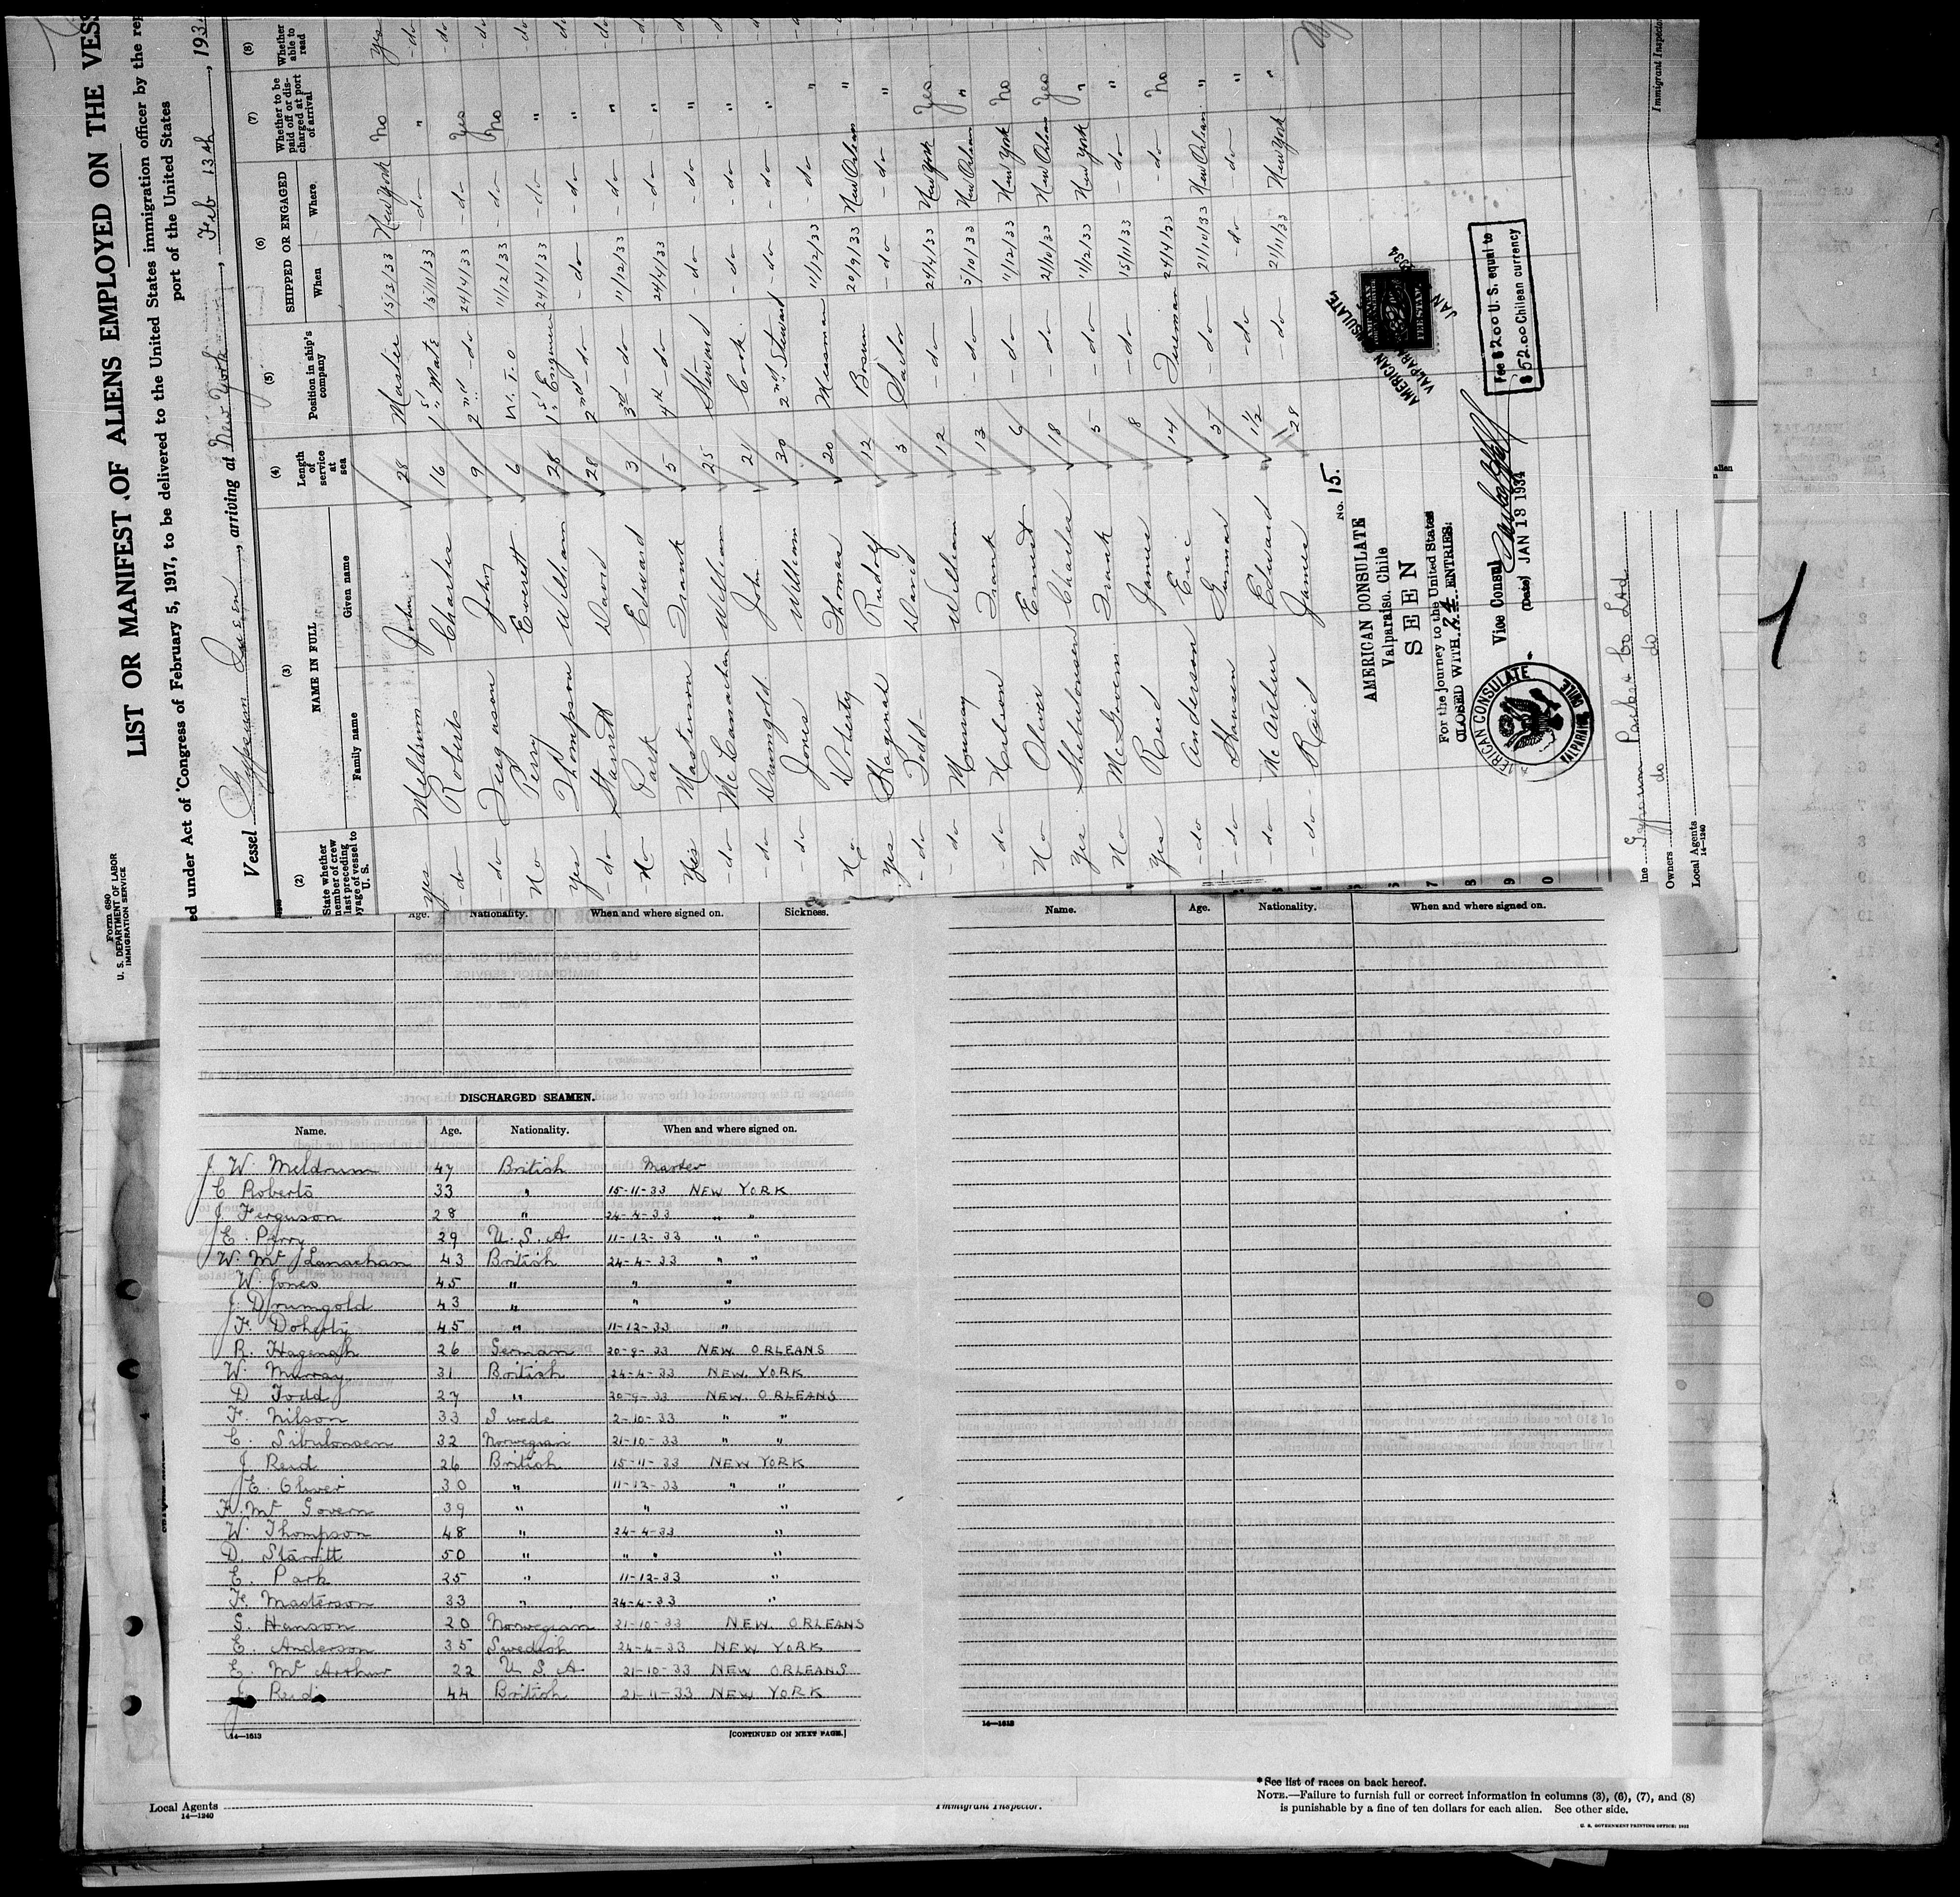 Form 680
U. S. DEPARTMENT OF LABOR
IMMIGRATION SERVICE
LIST OR MANIFEST OF ALIENS EMPLOYED ON THE VESS
ed under Act of Congress of February 5, 1917, to be delivered to the United States immigration officer by the rep
port of the United States
Vessel Gypsum Queen, arriving at New York, Feb 13th, 193
(2) (3) (4) (5) (6) (7) (8)
State whether member of crew last preceding voyage of vessel to U. S.
NAME IN FULL
Family name Given name
Length of service at sea
Position in ship's company
SHIPPED OR ENGAGED
When Where
Whether to be paid off or discharged at port of arrival
Whether able to read
yes Meldrum John 28 Master 15/3/33 New York No yes
-do- Roberts Charles 16 1st Mate 15/11/33 -do- " -do-
-do- Ferguson John 9 2nd -do- 24/4/33 -do- Yes -do-
No Perry Everett 6 W.T.O 11/12/33 -do- No -do-
Yes Thompson William 28 1st Engineer 24/4/33 -do- " -do-
-do- Starritt David 28 2nd -do- -do- -do- " -do-
No Park Edward 3 3rd -do- 11/12/33 -do- " -do-
Yes Masterson Frank 5 4th -do- 24/4/33 -do- " -do-
-do- McLanachan William 25 Steward -do- -do- " -do-
-do- Drumgold John 21 Cook -do- -do- " -do-
-do- Jones William 30 2nd Steward -do- -do- " -do-
No Doherty Thomas 20 Messman 11/12/33 -do- "
yes Hagenah Rudolf 12 Bosun 20/9/33 New Orleans "
-do- Todd David 3 Sailor -do- -do- "
-do- Murray William 12 -do- 24/4/33 New York Yes
-do- Nelson Frank 13 -do- New Orleans "
No Oliver Ernest 6 -do- 11/12/33 New York No
Yes Shibulonsen Charles 18 -do- 21/10/33 New Orleans Yes
No McGovern Frank 5 -do- 11/12/33 New York "
Yes Reid James 8 -do- 15/11/33 -do- "
-do- Anderson Eric 14 Fireman 24/4/33 -do- No
-do- Hansen Gunnar -do- 21/10/33 New Orleans "
-do- McArthur Edward 1½ -do- -do- -do- "
-do- Reid James 28 -do- 21/11/33 New York "
No. 15.
AMERICAN CONSULATE
Valparaiso, Chile
SEEN
For the journey to the United States
CLOSED WITH 24 ENTRIES.
Vice Consul
(Date) JAN 13 1934
AMERICAN CONSULATE
VALPARAISO, CHILE
AMERICAN CONSULATE
VALPARAISO
JAN 1934
Fee $2.00 U. S. equal to
$52.00 Chilean currency
ine Gypsum Packet Co Ltd.
Owners do do
Local Agents
14—1240
Immigrant Inspector
Age. Nationality. When and where signed on. Sickness.
DISCHARGED SEAMEN.
Name. Age. Nationality. When and where signed on.
J W. Meldrum 47 British Master
C Roberts 33 " 15-11-33 NEW YORK
J Ferguson 28 " 24-4-33 " "
E. Perry 29 U. S. A 11-12-33 " "
W. Mc Lanachan 43 British 24-4-33 " "
W. Jones 45 " " "
J. Drumgold 43 " " "
T. Doherty 45 " 11-12-33 "
R. Hagenah 26 German 20-9-33 NEW ORLEANS
W. Murray 31 British 24-4-33 NEW YORK
D Todd 27 " 20-9-33 NEW ORLEANS
F. Nilson 33 Swede 2-10-33 " "
C. Sibulonsen 32 Norwegian 21-10-33 " "
J Reid 26 British 15-11-33 NEW YORK
E. Oliver 30 " 11-12-33 " "
F. Mc Govern 39 " " "
W. Thompson 48 " 24-4-33 "
D. Starritt 50 " " " "
E. Park 25 " 11-12-33 "
F. Masterson 33 " 24-4-33 "
G. Hanson 20 Norwegian 21-10-33 NEW ORLEANS
E. Anderson 35 Swedish 24-4-33 NEW YORK
E. Mc Arthur 22 U S A 21-10-33 NEW ORLEANS
J Reid 44 British 21-11-33 NEW YORK
14—1613
[CONTINUED ON NEXT PAGE.]
Name. Age. Nationality. When and where signed on.
14—1613
Local Agents
14—1240
Immigrant Inspector.
*See list of races on back hereof.
NOTE.—Failure to furnish full or correct information in columns (3), (6), (7), and (8)
is punishable by a fine of ten dollars for each alien. See other side.
U. S. GOVERNMENT PRINTING OFFICE: 1932